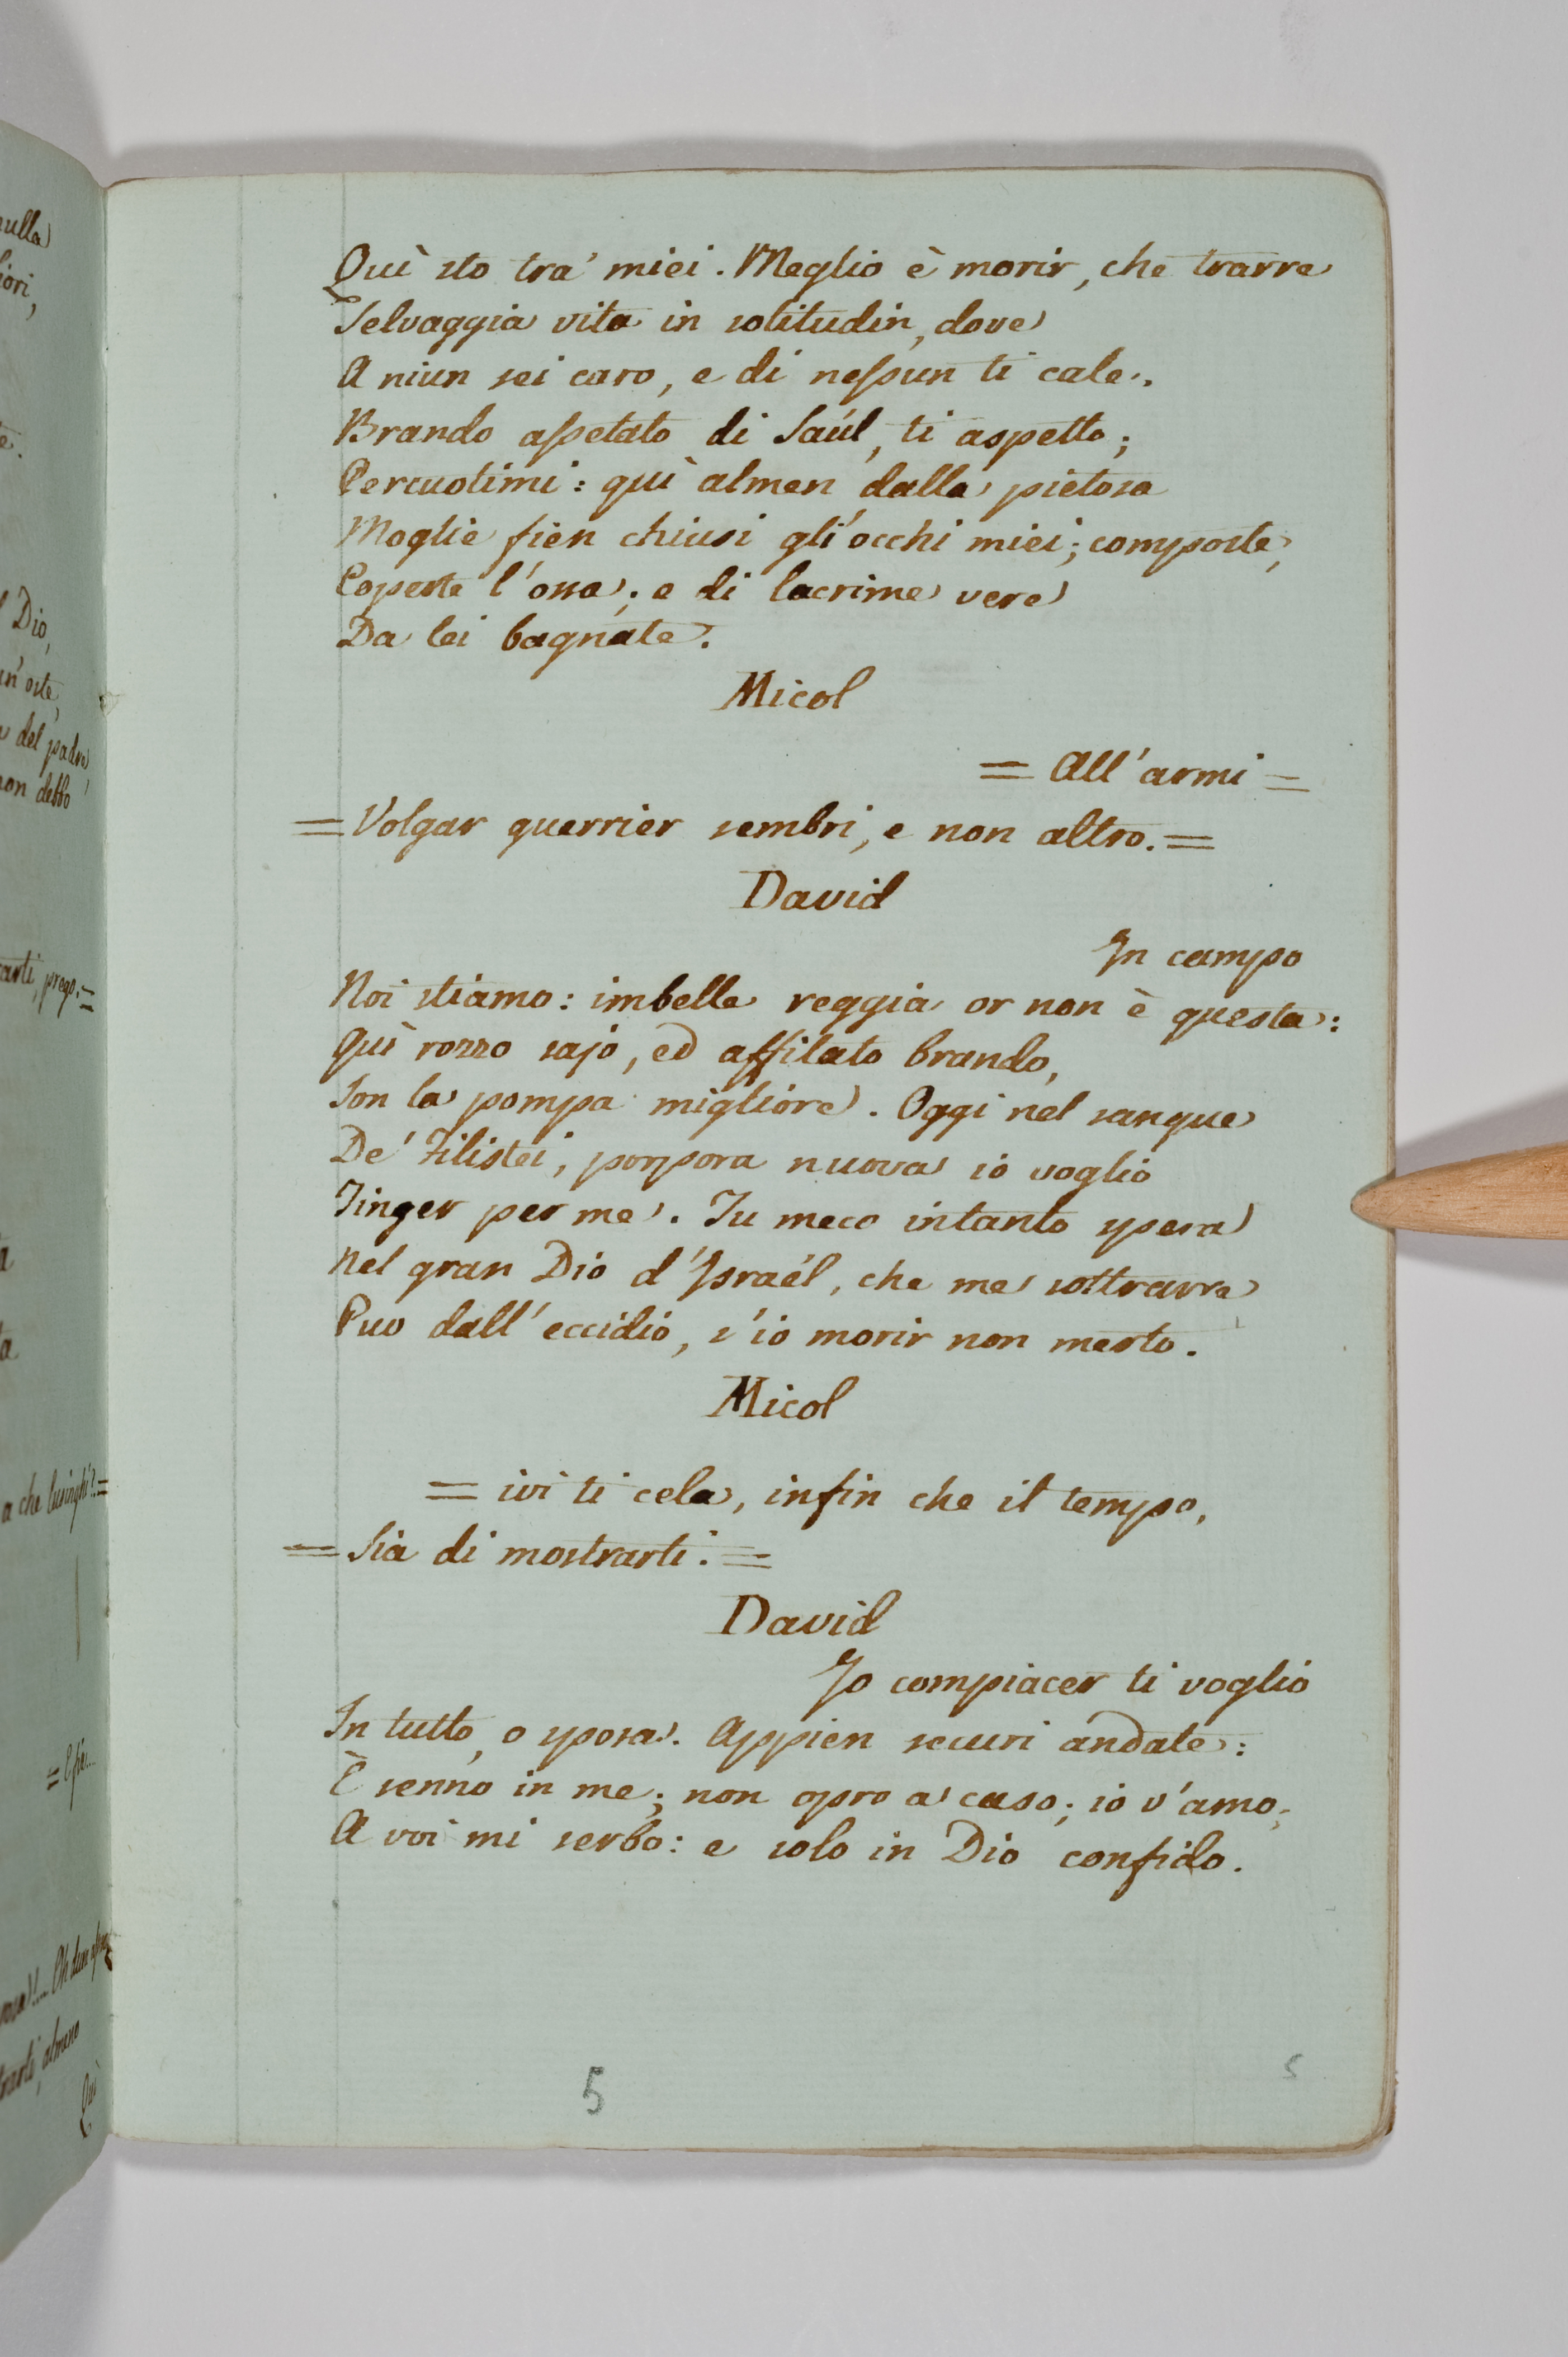 Quì sto tra' miei. Meglio è morir, che trarre
Selvaggia vita in solitudin, dove
A niun sei caro, e di neſsun ti cale.
Brando aſsetato di Saúl, ti aspetto;
Percuotimi: quì almen dalla pietosa
Moglie fien chiusi gli'occhi miei; composte,
Coperte l'ossa; e di lacrime vere
Da lei bagnate.
Micol
= All'armi =
= Volgar guerrier sembri, e non altro. =
David
In campo
Noi stiamo: imbelle reggia or non è questa:
Quì rozzo sajo, ed affilato brando,
Son la pompa migliore. Oggi nel sangue
De' Filistei, porpora nuova io voglio
Tinger per me. Tu meco intanto spera
Nel gran Dio d'Israél, che me sottrarre
Puo dall'eccidio, s'io morir non merto.
Micol
= ivi ti cela, infin che il tempo,
= Sia di mostrarti. =
David
Io compiacer ti voglio
In tutto, o sposa. Appien securi andate:
È senno in me; non opro a caso; io v'amo;
A voi mi serbo: e solo in Dio confido.
5
5
nulla
Dio,
del padre
non debbo
prego. =
a che lusinghi? =
almeno
Quì